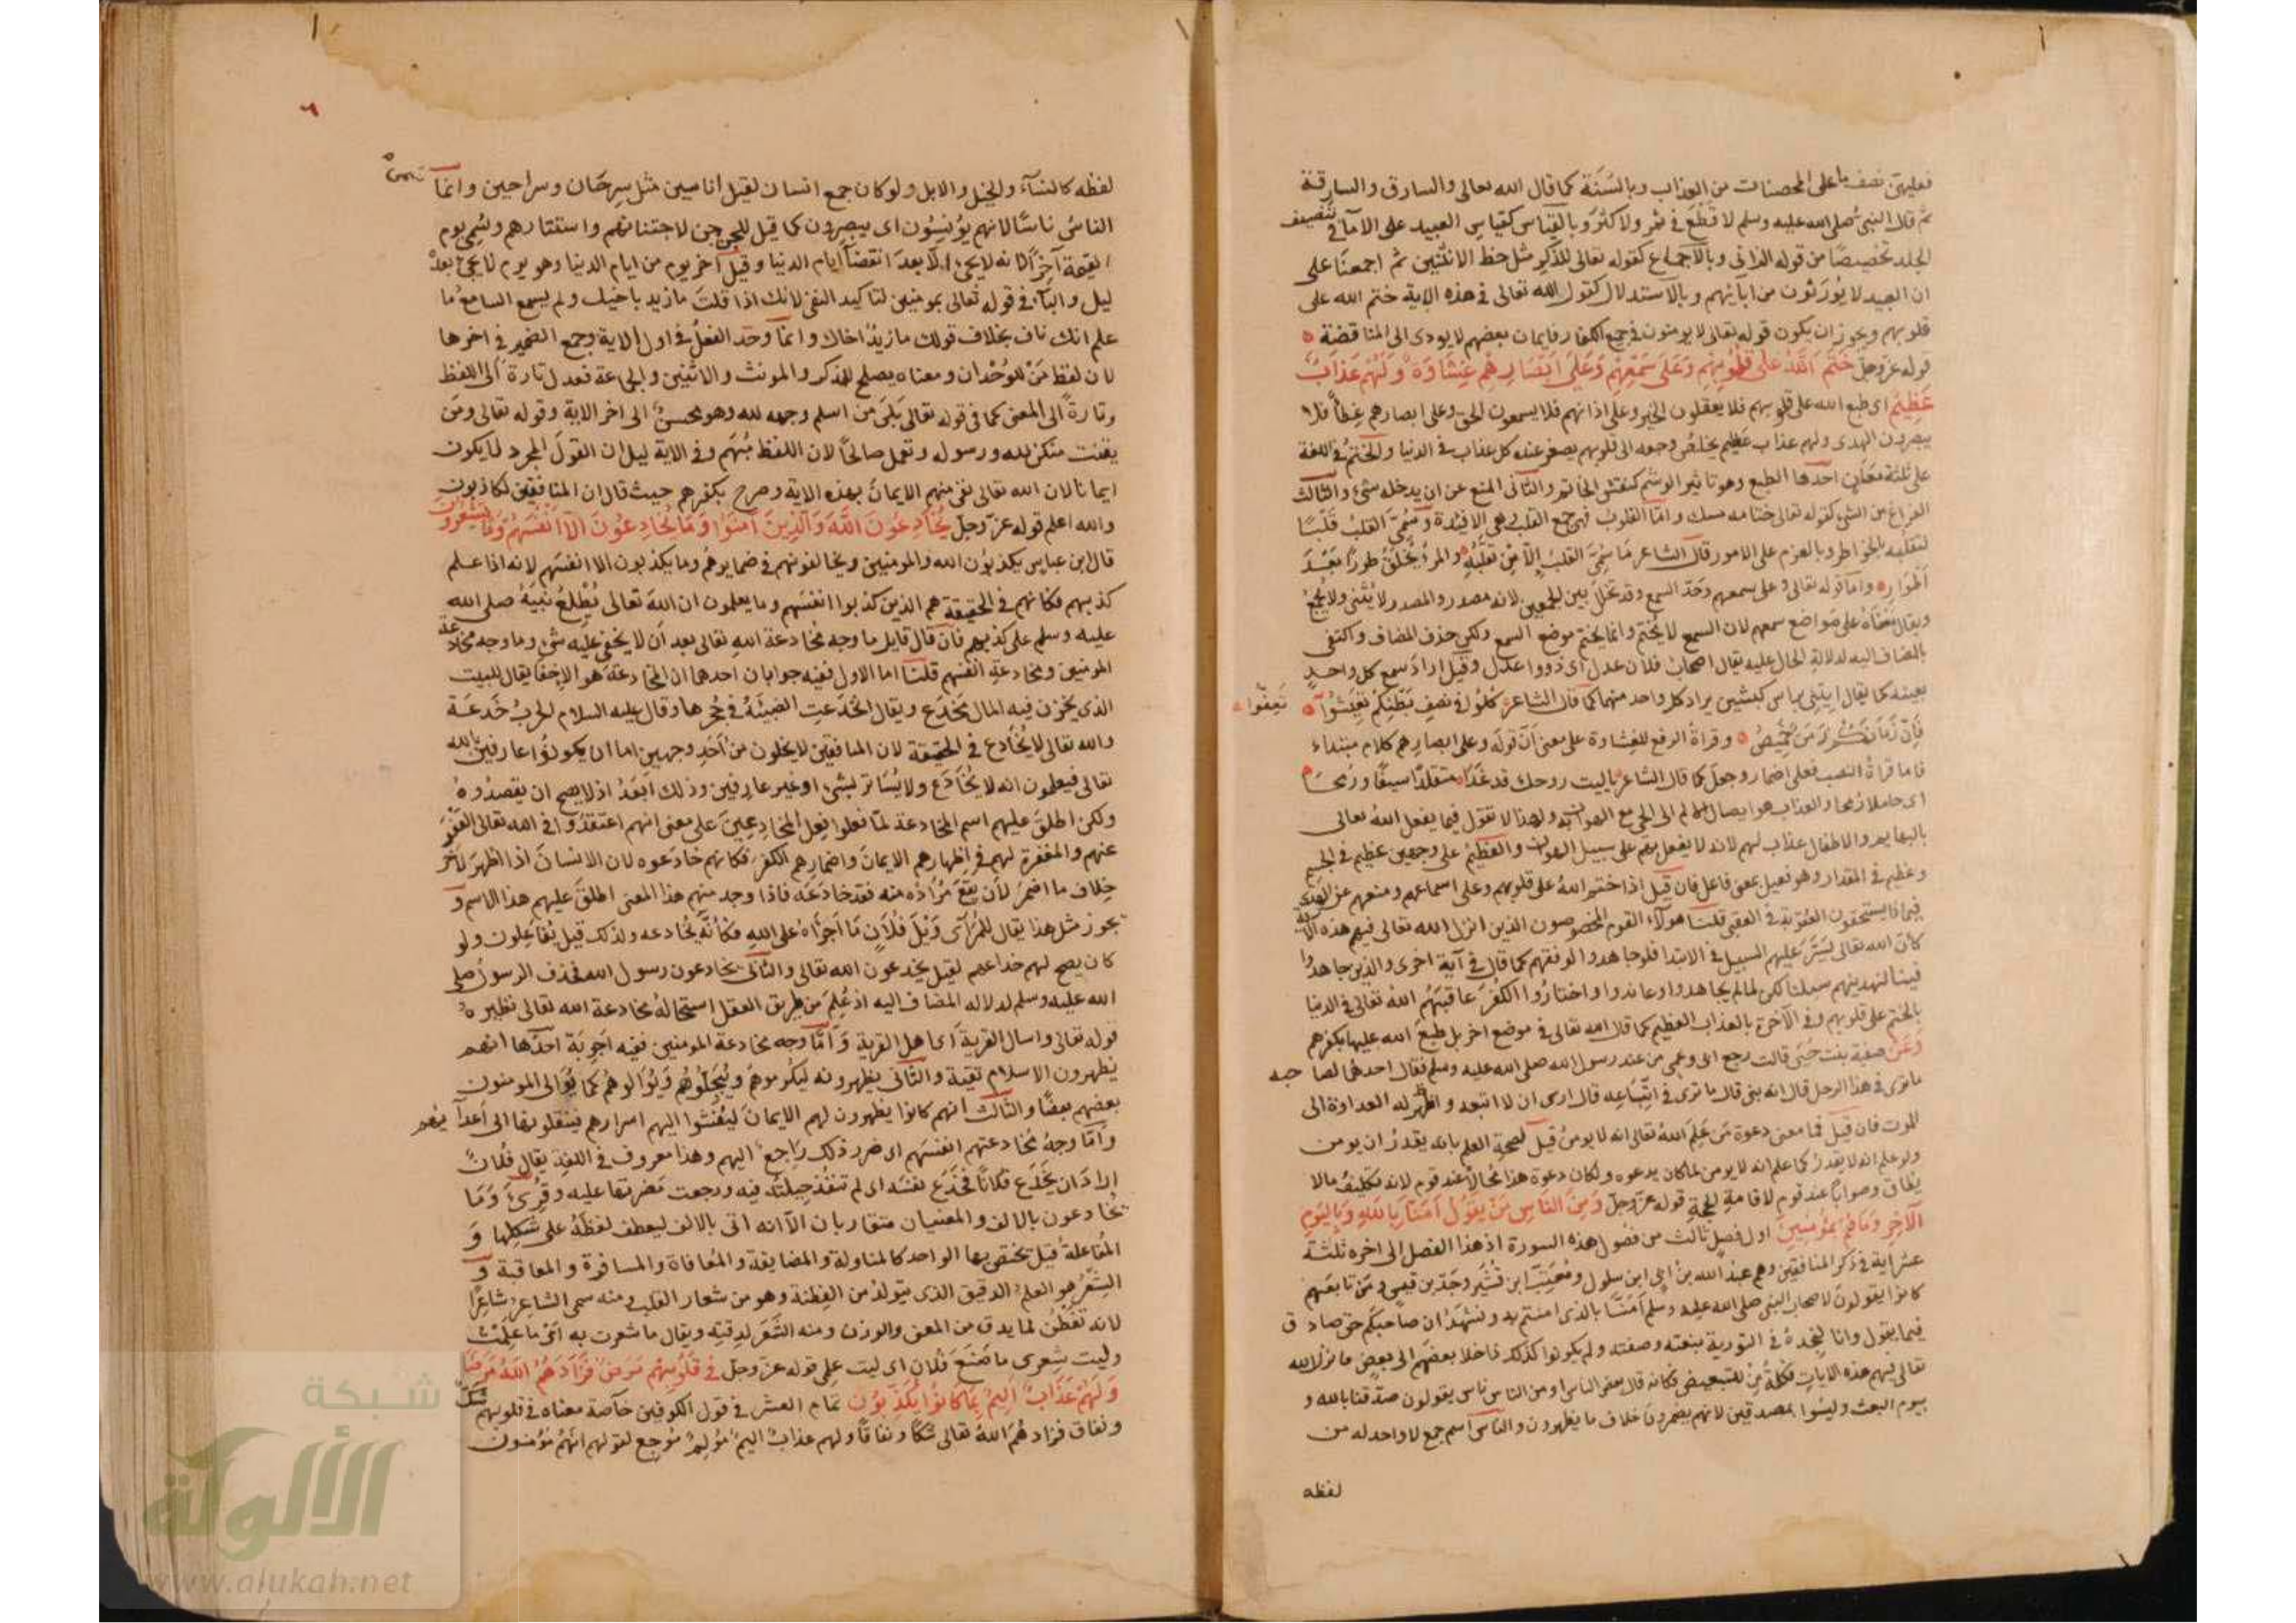 فعليهن نصف ما على المحصنات من العذاب وبالسنة كما قال الله تعالى والسارق والسارقة
ثم قال النبي صلى الله عليه وسلم لا قطع في ثمر ولا كثر وبالقياس كقياس العبيد على الاماء في تنصيف
الجلد تخصيصا من قوله الزاني وبالاجماع كقوله تعالى للذكر مثل حظ الانثيين ثم اجمعنا على
ان العبيد لا يورثون من ابائهم وبالاستدلال كقول الله تعالى في هذه الاية ختم الله على
قلوبهم ويجوز ان يكون قوله تعالى لا يومنون في جميع الكفار فايمان بعضهم لا يودى الى المناقضة
قوله عز وجل ختم الله على قلوبهم وعلى سمعهم وعلى ابصارهم غشاوة ولهم عذاب
عظيم اى طبع الله على قلوبهم فلا يعقلون الخير وعلى اذانهم فلا يسمعون الحق وعلى ابصارهم غطآ فلا
يبصرون الهدى ولهم عذاب عظيم يخلص وجعه الى قلوبهم يصغر عنده كل عذاب في الدنيا والختم في اللغة
على ثلثة معان احدها الطبع وهو تاثير الوشم كنقش الخاتم والثاني المنع عن ان يدخله شئ والثالث
الفراغ من الشئ كقوله تعالى ختامه مسك واما القلوب فهى جمع القلب وهى الافئدة وسمى القلب قلبا
لتقلبه بالخواطر وبالعزم على الامور قال الشاعر ما سمى القلب الا من تقلبه والمرء يخلق طورا بعد
اطوار واما قوله تعالى وعلى سمعهم وحد السمع وقد تخلل بين الجمعين لانه مصدر والمصدر لا يثنى ولا يجمع
ويقال معناه على مواضع سمعهم لان السمع لا يختم وانما يختم موضع السمع ولكن حذف المضاف واكتفى
بالمضاف اليه لدلالة الحال عليه يقال اصحاب فلان عدل اى ذووا عدل وقيل اراد سمع كل واحد
بعينه كما يقال ايتني براس كبشين يراد كل واحد منهما كما قال الشاعر كلوا في نصف بطنكم تعيشوا
تعفوا
فان زمانكم زمن خميص وقراة الرفع للغشاوة على معنى ان قوله وعلى ابصارهم كلام مبتداء
فاما قراة النصب فعلى اضمار وجعل كما قال الشاعر يا ليت زوجك قد غدا متقلدا سيفا ورمحا
اى حاملا رمحا والعذاب هو ايصال الالم الى الحى مع الهوان به ولهذا لا نقول فيما يفعل الله تعالى
بالبهايم والاطفال عذاب لهم لانه لا يفعل بهم على سبيل الهوان والعظيم على وجهين عظيم في الجسم
وعظيم في المقدار وهو فعيل بمعنى فاعل فان قيل اذا ختم الله على قلوبهم وعلى اسماعهم ومنعهم عن الهدى
فبماذا يستحقون العقوبة في العقبى قلنا هولاء القوم المخصوصون الذين انزل الله تعالى فيهم هذه الاية
كان الله تعالى يسر عليهم السبيل في الابتدا فلو جاهدوا لوفقهم كما قال في آية اخرى والذين جاهدوا
فينا لنهدينهم سبلنا لكن لما لم يجاهدوا وعاندوا واختاروا الكفر عاقبهم الله تعالى في الدنيا
بالختم على قلوبهم وفي الآخرة بالعذاب العظيم كما قال الله تعالى في موضع اخر بل طبع الله عليها بكفرهم
وعن صفية بنت حيى قالت رجع ابى وعمى من عند رسول الله صلى الله عليه وسلم فقال احدهما لصاحبه
ما ترى في هذا الرجل قال انه نبى قال ما ترى في اتباعه قال ارى ان لا اتبعه واظهر له العداوة الى
الموت فان قيل فما معنى دعوة من علم الله تعالى انه لا يومن قيل لصحة العلم بانه يقدر ان يومن
ولو علم انه لا يقدر كما علم انه لا يومن لما كان يدعوه ولكان دعوة هذا محالا عند قوم لانه تكليف ما لا
يطاق وصوابا عند قوم لاقامة الحجة قوله عز وجل ومن الناس من يقول امنا بالله وباليوم
الآخر وما هم بمؤمنين اول فصل ثالث من فصول هذه السورة اذ هذا الفصل الى اخره ثلثة
عشر اية في ذكر المنافقين وهم عبد الله بن ابى ابن سلول ومعتب ابن قشير وجد بن قيس ومن تابعهم
كانوا يقولون لاصحاب النبى صلى الله عليه وسلم امنا بالذى امنتم به ونشهد ان صاحبكم حق صادق
فيما يقول وانا لنجده في التورية بنعته وصفته ولم يكونوا كذلك اذا خلا بعضهم الى بعض فانزل الله
تعالى فيهم هذه الايات فكلمة من للتبعيض فكانه قال بعض الناس او من الناس ناس يقولون صدقنا بالله و
بيوم البعث وليسوا بمصدقين لانهم يضمرون خلاف ما يظهرون والناس اسم جمع لا واحد له من
لفظه
٦
لفظه كالنسآء والخيل والابل ولو كان جمع انسان لقيل اناسين مثل سرحان وسراحين وانما سمى
الناس ناسا لانهم يؤنسون اى يبصرون كما قيل للجن جن لاجتنانهم واستتارهم وسمى يوم
القيمة آخرا لانه لا يجئ الا بعد انقضآ ايام الدنيا وقيل آخر يوم من ايام الدنيا وهو يوم لا يجئ بعده
ليل والبآء في قوله تعالى بمومنين لتاكيد النفى لانك اذا قلت ما زيد باخيك ولم يسمع السامع ما
علم انك ناف بخلاف قولك ما زيد اخاك وانما وحد الفعل في اول الاية وجمع الضمير في اخرها
لان لفظ من للوحدان ومعناه يصلح للمذكر والمونث والاثنين والجماعة فعدل تارة الى اللفظ
وتارة الى المعنى كما في قوله تعالى بلى من اسلم وجهه لله وهو محسن الى اخر الاية وقوله تعالى ومن
يقنت منكن لله ورسوله وتعمل صالحا لان اللفظ مبهم وفي الاية دليل ان القول المجرد لا يكون
ايمانا لان الله تعالى نفى منهم الايمان بهذه الاية وصرح بكفرهم حيث قال ان المنافقين لكاذبون
والله اعلم قوله عز وجل يخادعون الله والذين آمنوا وما يخادعون الا انفسهم وما يشعرون
قال ابن عباس يكذبون الله والمومنين ويخالفونهم في ضمايرهم وما يكذبون الا انفسهم لانه اذا علم
كذبهم فكانهم في الحقيقة هم الذين كذبوا انفسهم وما يعلمون ان الله تعالى يطلع نبيه صلى الله
عليه وسلم على كذبهم فان قال قايل ما وجه مخادعة الله تعالى بعد ان لا يخفى عليه شئ وما وجه مخادعة
المومنين ومخادعة انفسهم قلنا اما الاول ففيه جوابان احدهما ان المخادعة هو الاخفا يقال للبيت
الذى يخزن فيه المال مخدع ويقال انخدعت الضبة في جحرها وقال عليه السلام الحرب خدعة
والله تعالى لا يخادع في الحقيقة لان المنافقين لا يخلون من احد وجهين اما ان يكونوا عارفين بالله
تعالى فيعلمون انه لا يخادع ولا يساتر بشئ او غير عارفين وذلك ابعد اذ لا يصح ان يقصدوه
ولكن اطلق عليهم اسم المخادعة لما فعلوا فعل المخادعين على معنى انهم اعتقدوا في الله تعالى العفو
عنهم والمغفرة لهم في اظهارهم الايمان واضمارهم الكفر فكانهم خادعوه لان الانسان اذا اظهر لآخر
خلاف ما اضمر لان يقع مراده منه فقد خادعه فاذا وجد منهم هذا المعنى اطلق عليهم هذا الاسم و
يجوز مثل هذا يقال للمرآى ويل فلان ما اجرأه على الله فكأنه يخادعه ولذلك قيل يفاعلون ولو
كان يصح لهم خداعهم لقيل يخدعون الله تعالى والثانى يخادعون رسول الله فحذف الرسول صلى
الله عليه وسلم لدلاله المضاف اليه اذ علم من طريق العقل استحالة مخادعة الله تعالى نظيره
قوله تعالى واسال القرية اى اهل القرية واما وجه مخادعة المومنين ففيه اجوبة احدها انهم
يظهرون الاسلام تقية والثانى يظهرونه ليكرموهم ويبجلوهم ويوالوهم كما يوالى المومنون
بعضهم بعضا والثالث انهم كانوا يظهرون لهم الايمان ليفشوا اليهم اسرارهم فينقلونها الى اعدآيهم
واما وجه مخادعتهم انفسهم اى ضرر ذلك راجع اليهم وهذا معروف في اللغة يقال فلان
اراد ان يخدع فلانا فخدع نفسه اى لم تنفذ حيلته فيه ورجعت مضرتها عليه وقرئ وما
يخادعون بالالف والمعنيان متقاربان الا انه اتى بالالف ليعطف لفظه على شكلها و
المفاعلة قيل تختص بها الواحد كالمناولة والمضايقة والمعافاة والمسافرة والمعاقبة و
الشعر هو العلم الدقيق الذى يتولد من الفطنة وهو من شعار القلب ومنه سمى الشاعر شاعرا
لانه تفطن لما يدق من المعنى والوزن ومنه الشعر لدقته ويقال ما شعرت به اى ما علمت
وليت شعرى ما صنع فلان اى ليت علمى قوله عز وجل في قلوبهم مرض فزادهم الله مرضا
ولهم عذاب اليم بما كانوا يكذبون تمام العشر في قول الكوفيين خآصة معناه في قلوبهم شك
ونفاق فزادهم الله تعالى شكا ونفاقا ولهم عذاب اليم مؤلم موجع لقولهم انهم مؤمنون
شبكة
الألوكة
www.alukah.net